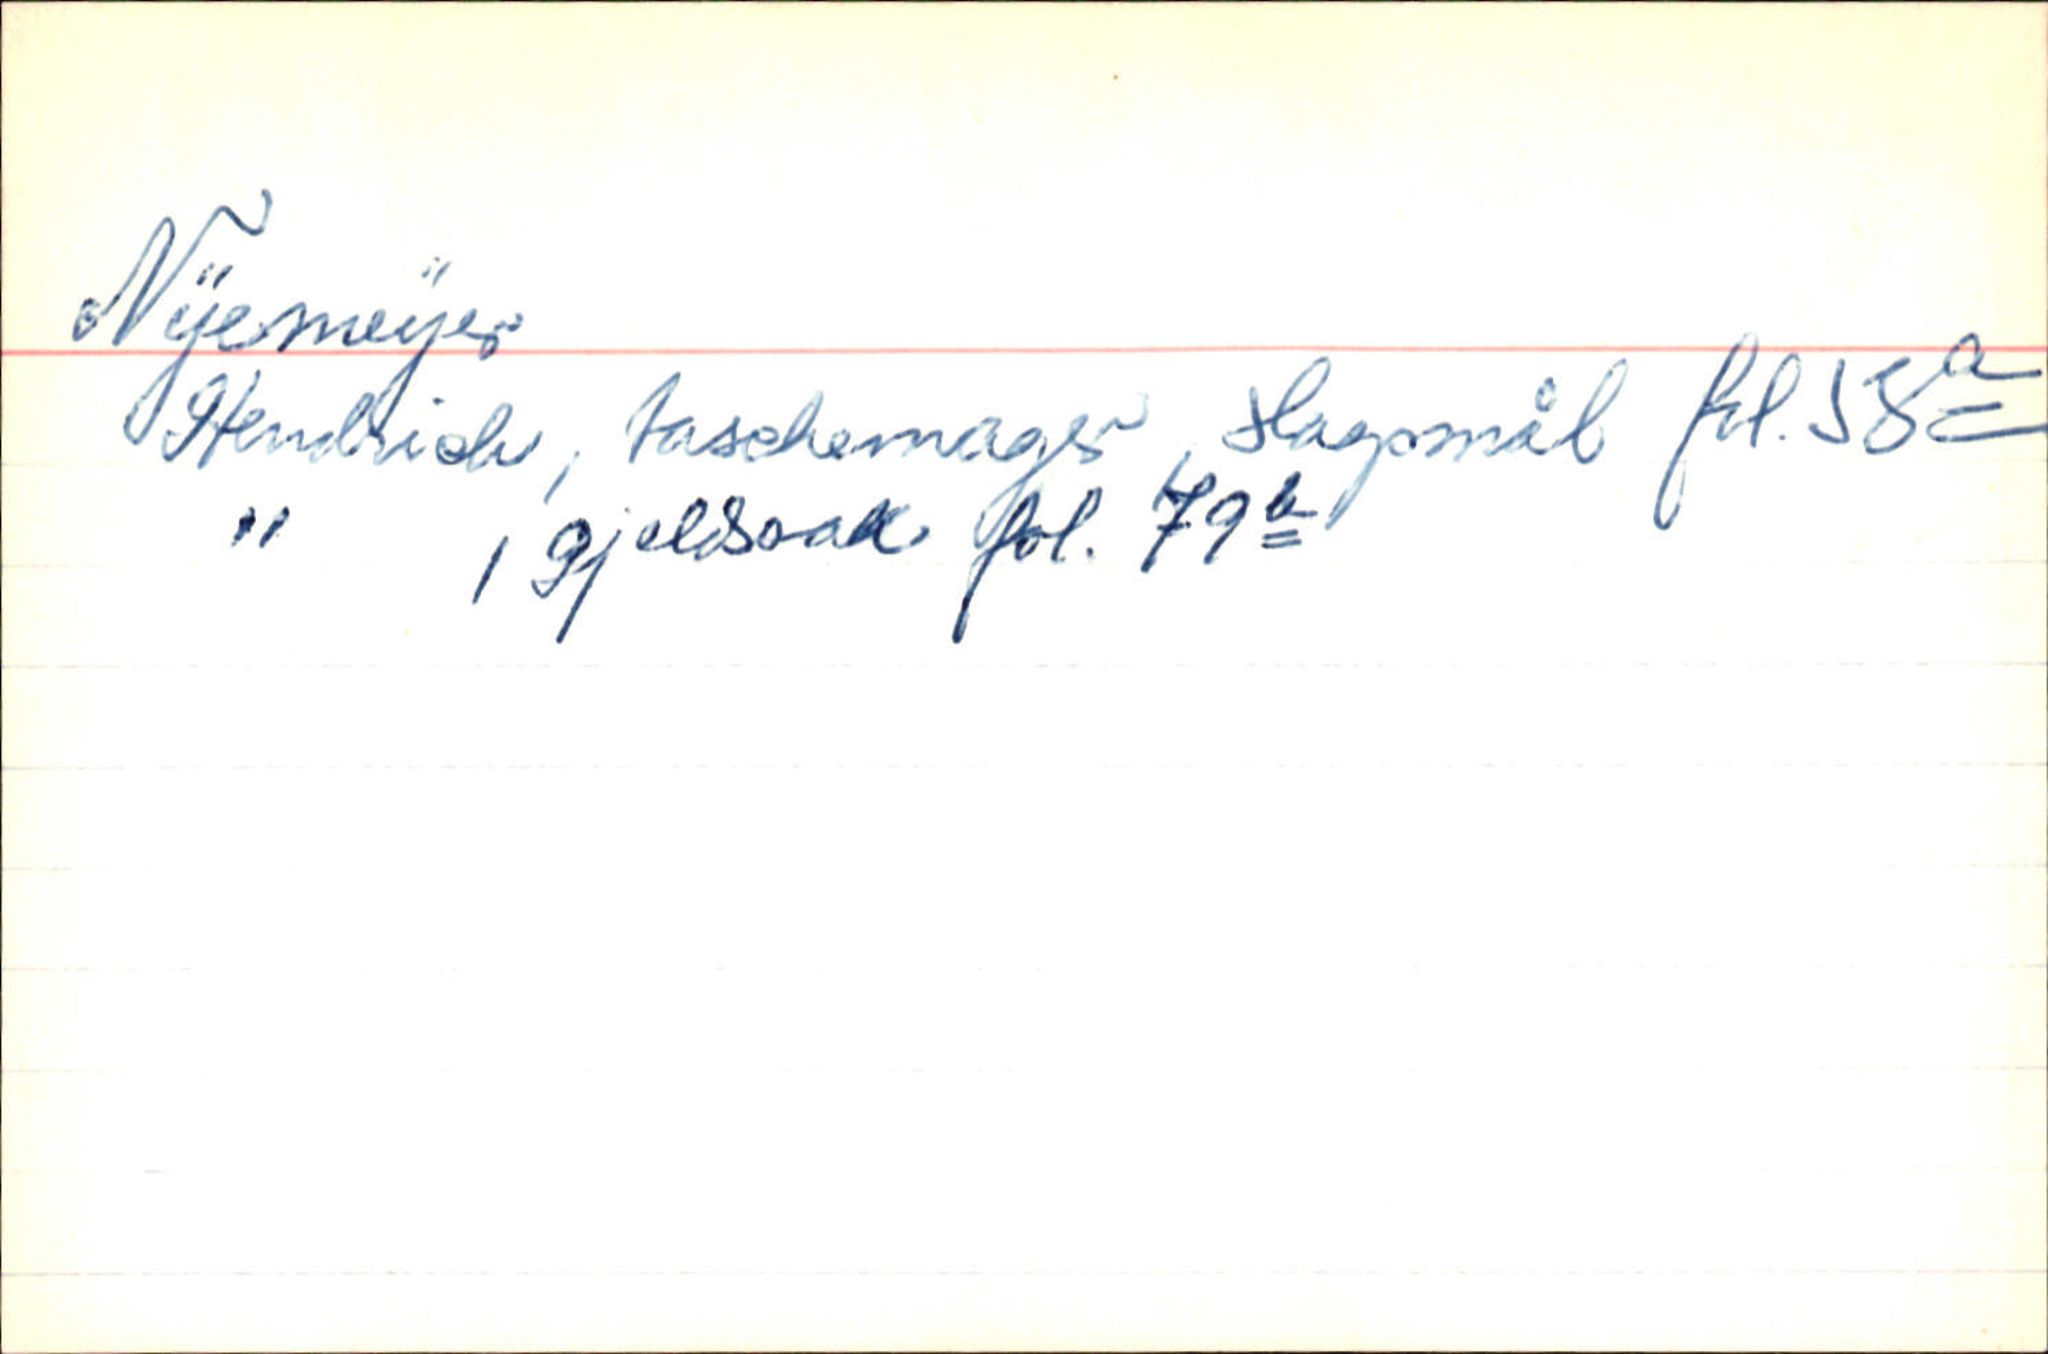 Nÿemeÿer
Hendrich, taschemager, slagsmål fol. 58a
" , gjeldssak fol. 79b